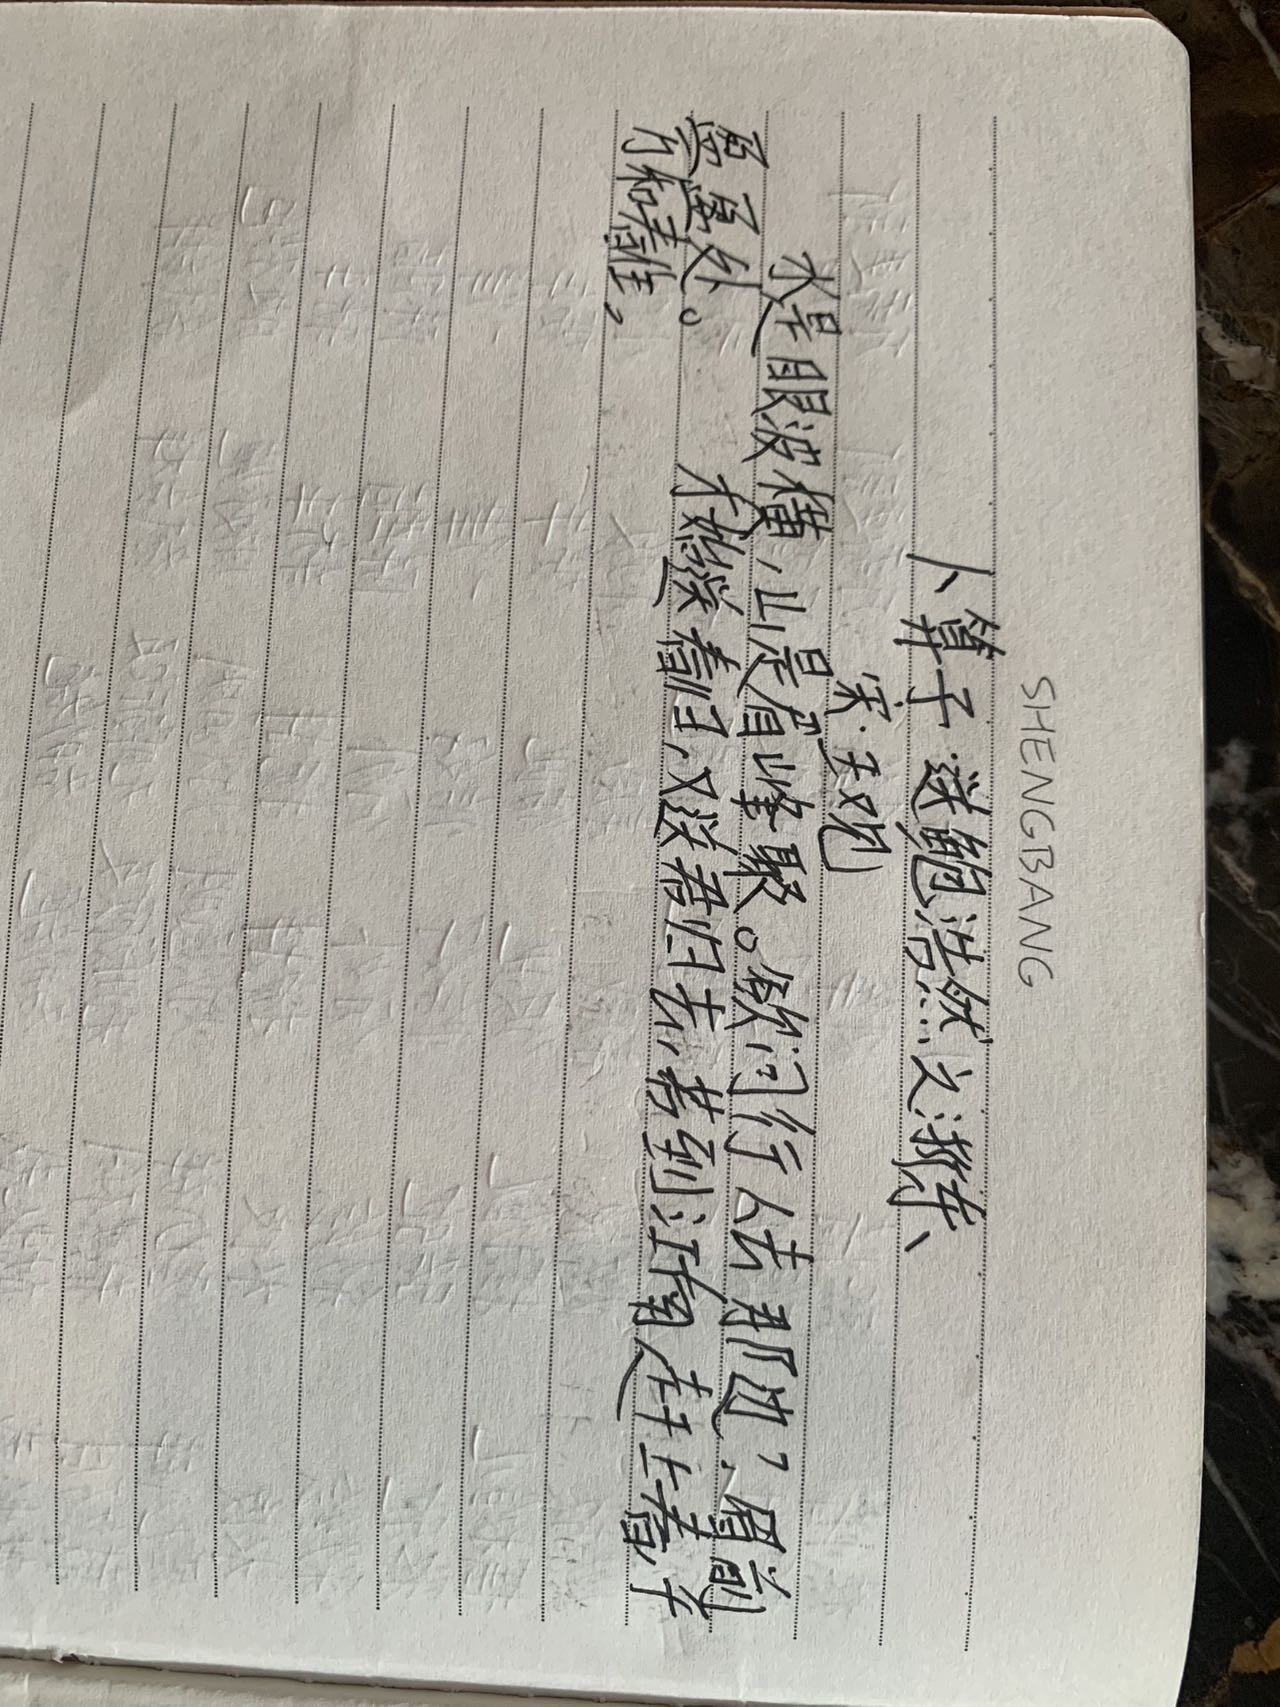 SHENGBANG
卜算子·送鲍浩然之浙东、
宋·王观
水是眼波横,山是眉峰聚。欲问行人去那边?,眉前
盈盈处。 才始送春归,又送君归去,若到江南赶上春,千
万和春住,